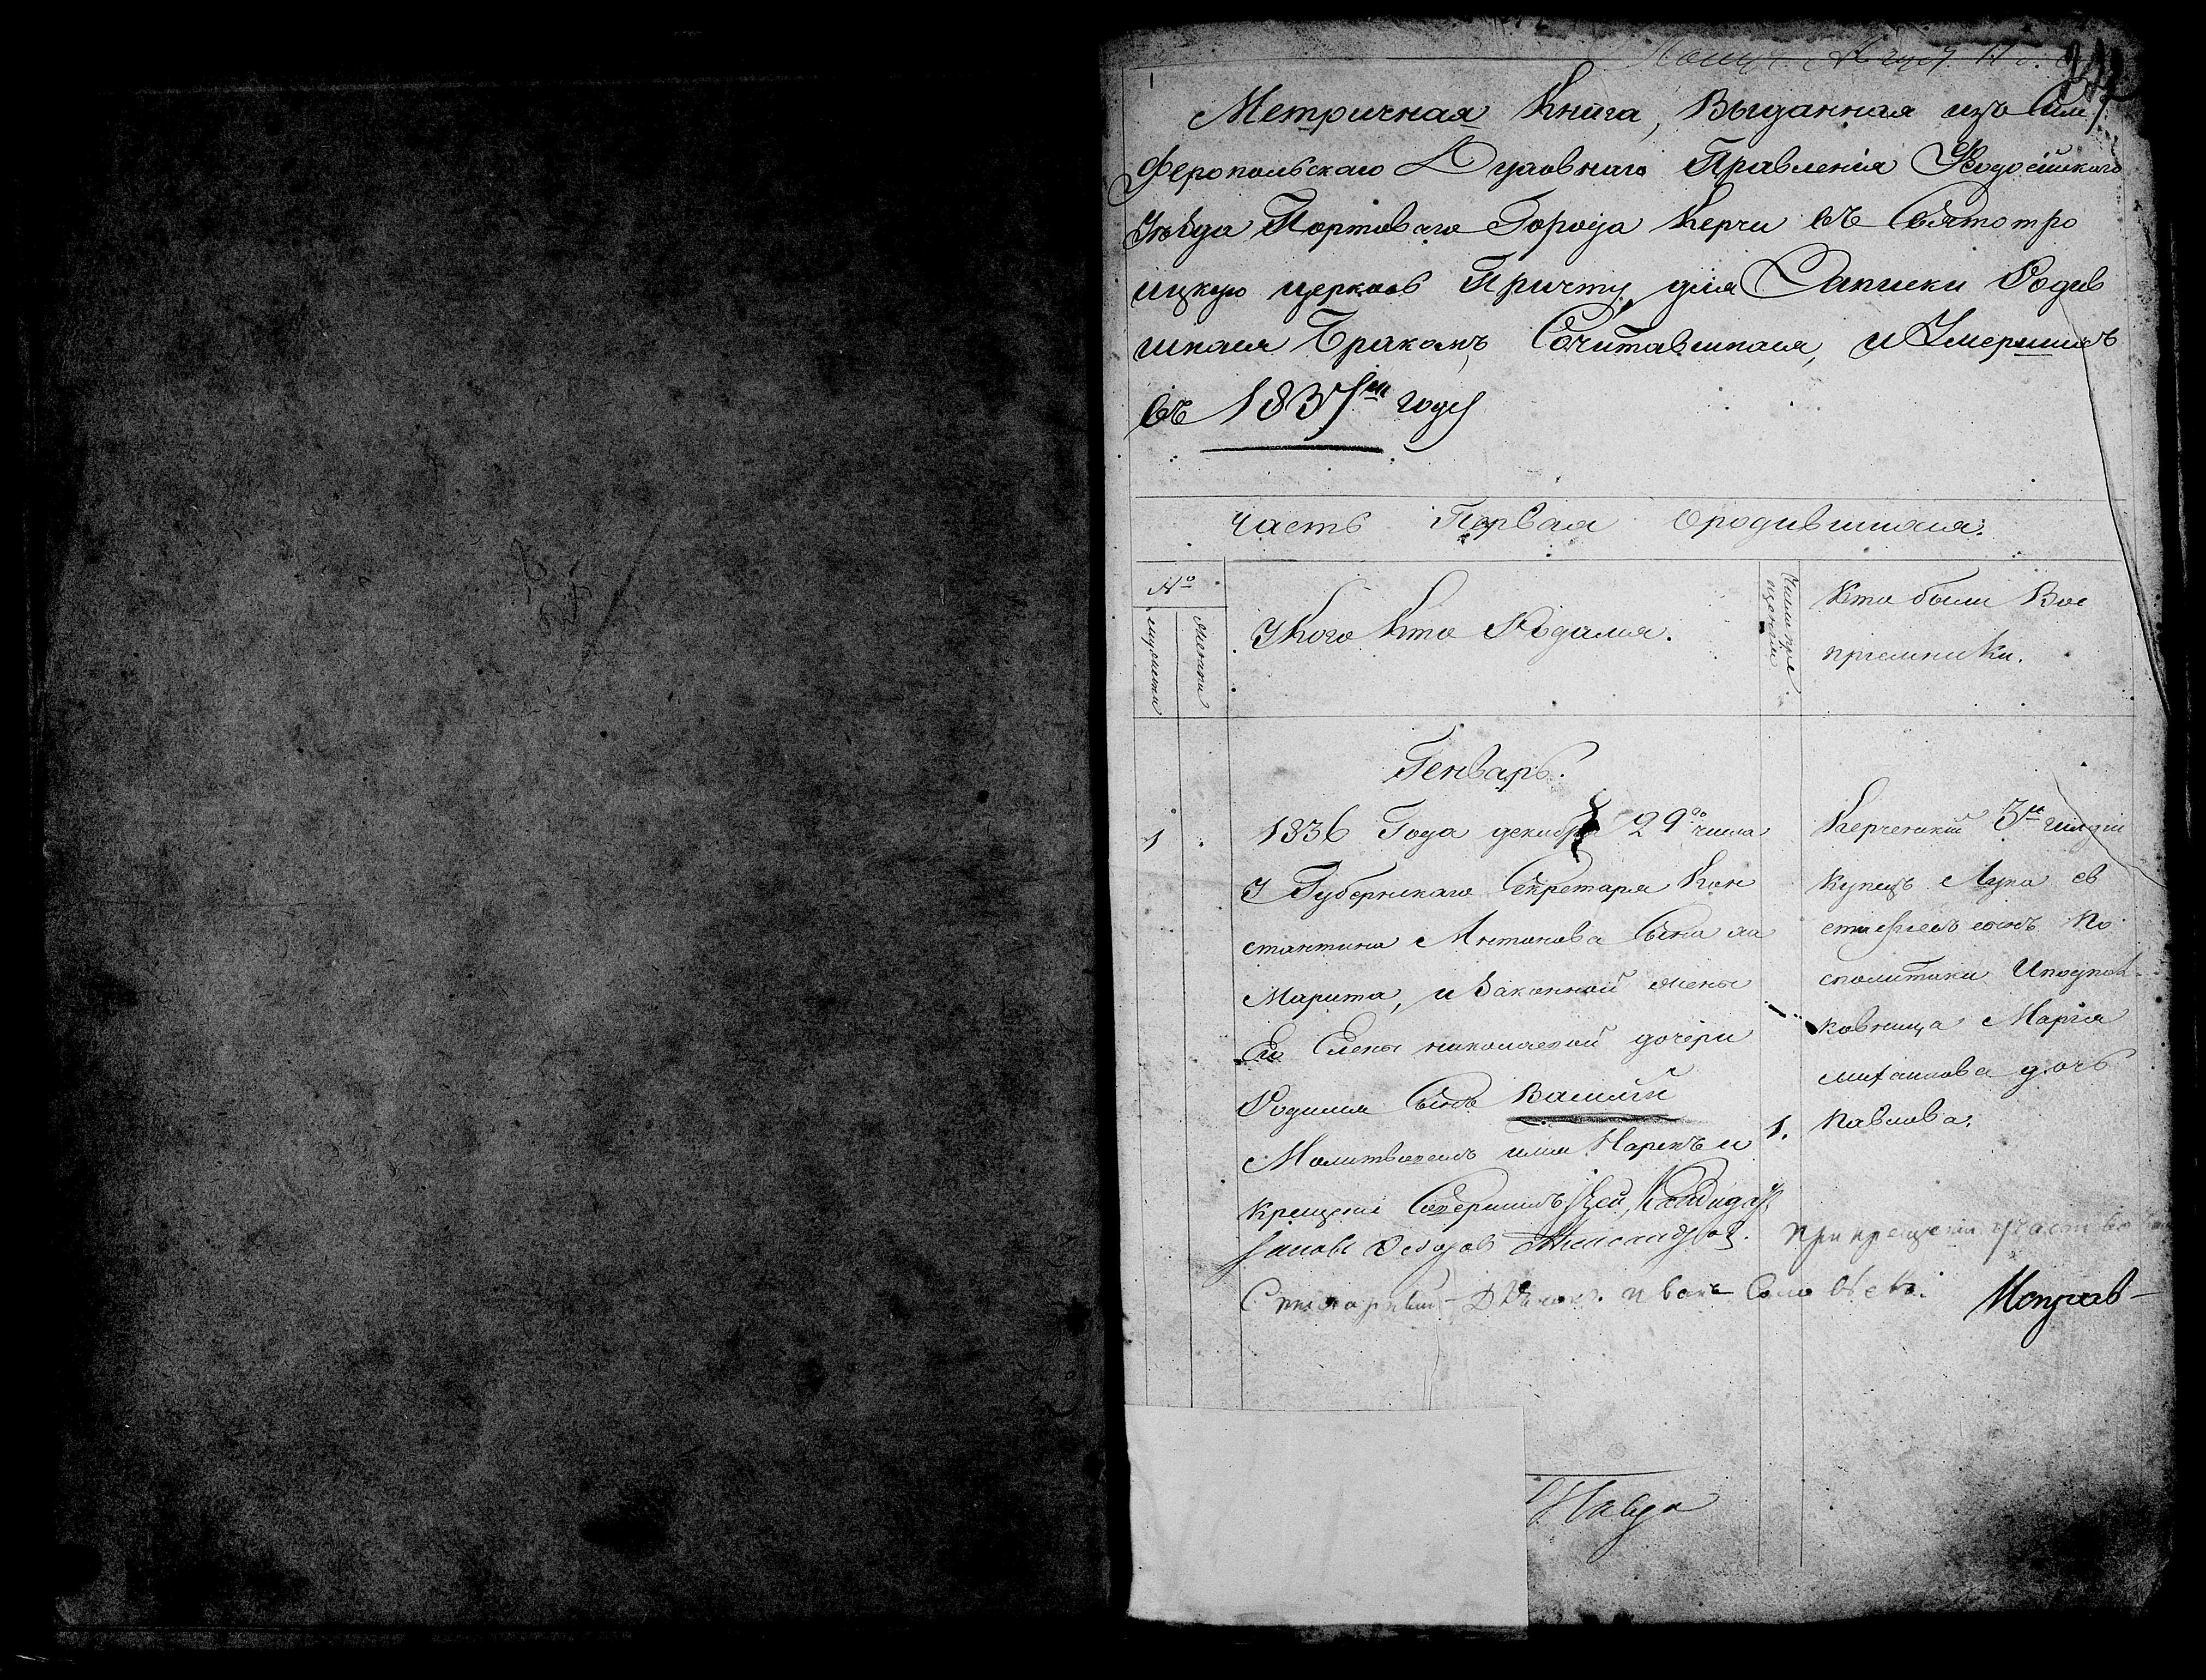 Метричная Книга, Выданная изъ Сим
феропольскаго Духовнаго Правленія Феодосійскаго
Уѣзда Портоваго Города Керчи въ Святотро
ицкую церковь Причту, для Записки Родив
шихся Бракомъ Сочитавшихся, и Умершихъ
въ 1837м году
Часть Первая Ородившихся.
№
мужеска
женска
У Кого Кто Родился.
Число кре
щенія
Кто были Вос
приемники.
Генварь.
1
1836 Года декабря 29го числа
У Губернскаго Секретаря Кон
стантина Антонова Сына
Марита, и Законной жены
Его Елены николаевой дочери
Родился Сынъ Василій
Молитвовалъ имя Нарекъ и
крещеніе Совершилъ
1.
Керченскій 3й гилдіи
Купецъ Лука ев
стафіевъ сынъ По
сполитаки Иподпол
ковница Марія
михаилова дочь
Павлова.
При крещеніи участвовал
Иванъ Соловьевъ.